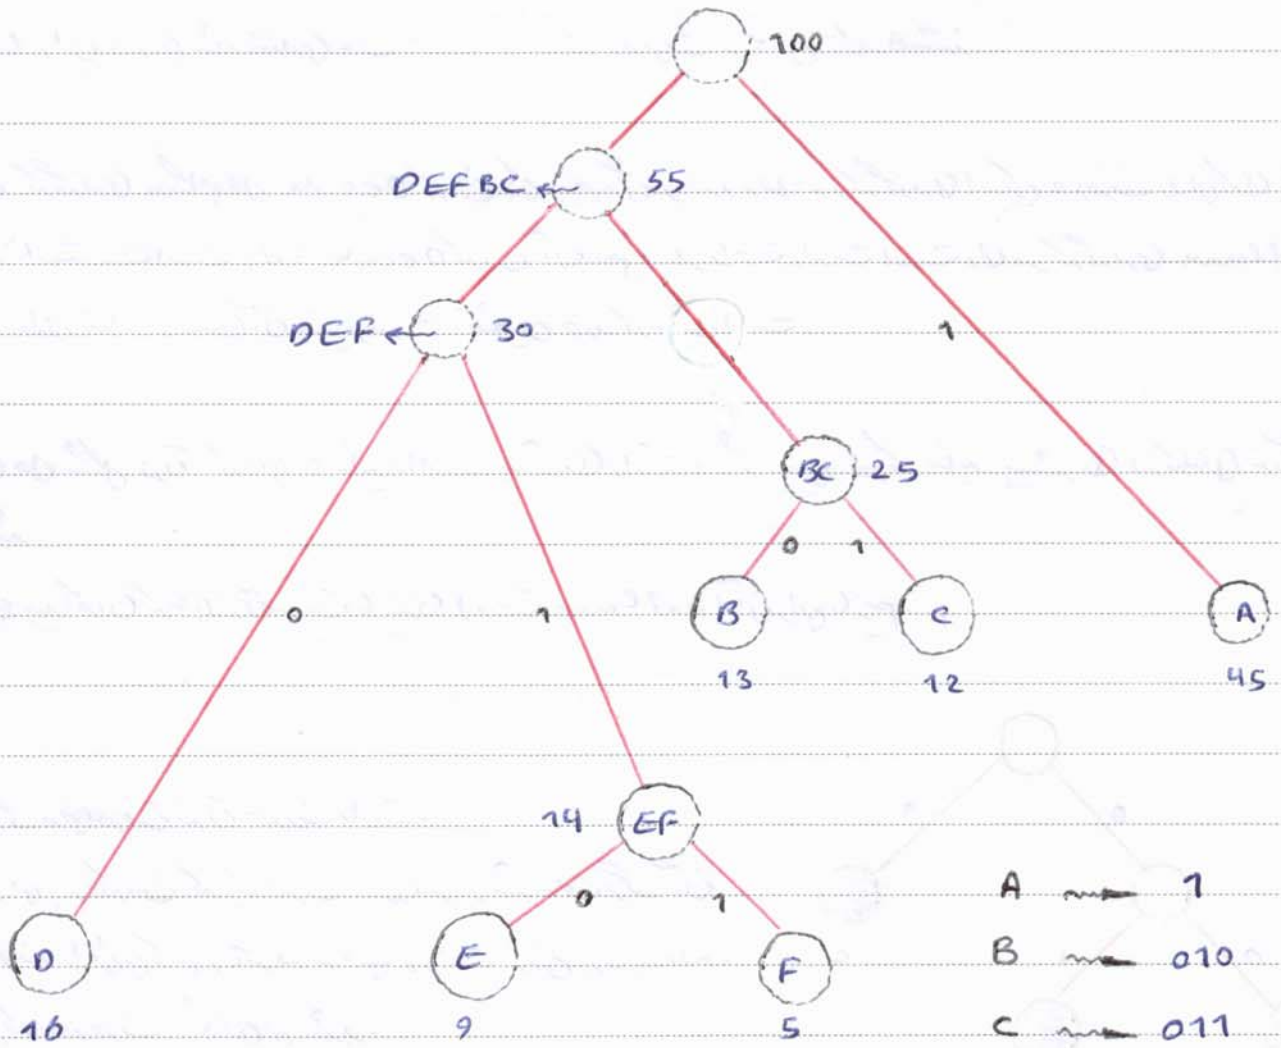 100
DEFBC 55
DEF 30
1
BC 25
0 1
0 1
B C A
13 12 45
14 EF
0 1
A 1
D E F
B 010
16 9 5
C 011